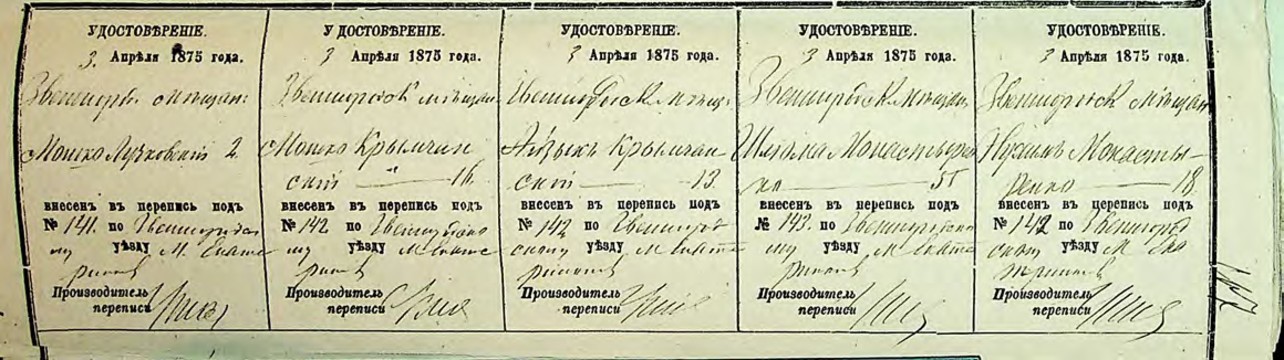 УДОСТОВѢРЕНІЕ.
3. Апрѣля 1875 года.
Звенигор. мѣщан:
Мошко Лузковскій 2.
внесенъ въ перепись подъ
№ 141. по Звенигородско
му уѣзду М. Екате
Производитель
переписи
УДОСТОВѢРЕНІЕ.
3 Апрѣля 1875 года.
Звенигородск мѣщан
Мошко Крымчан
ский — 16.
внесенъ въ перепись подъ
№ 142 по Звенигородско
му уѣзду М Екате
Производитель
переписи
УДОСТОВѢРЕНІЕ.
3 Апрѣля 1875 года.
Звенигородск мѣщ.
Айзыкъ Крымчан
ский — 13.
внесенъ въ перепись подъ
№ 142 по Звенигород
скому уѣзду М Екате
Производитель
переписи
УДОСТОВѢРЕНІЕ.
3 Апрѣля 1875 года.
Звенигородск мѣщан
Шлёма Монастырс
внесенъ въ перепись подъ
№ 143. по Звенигородско
му уѣзду М Екате
Производитель
переписи
УДОСТОВѢРЕНІЕ.
3 Апрѣля 1875 года.
Звенигородск мѣщан
Нухимъ Монасты-
— 18.
внесенъ въ перепись подъ
№ 142 по Звенигород
скому уѣзду М Ека
Производитель
переписи
147